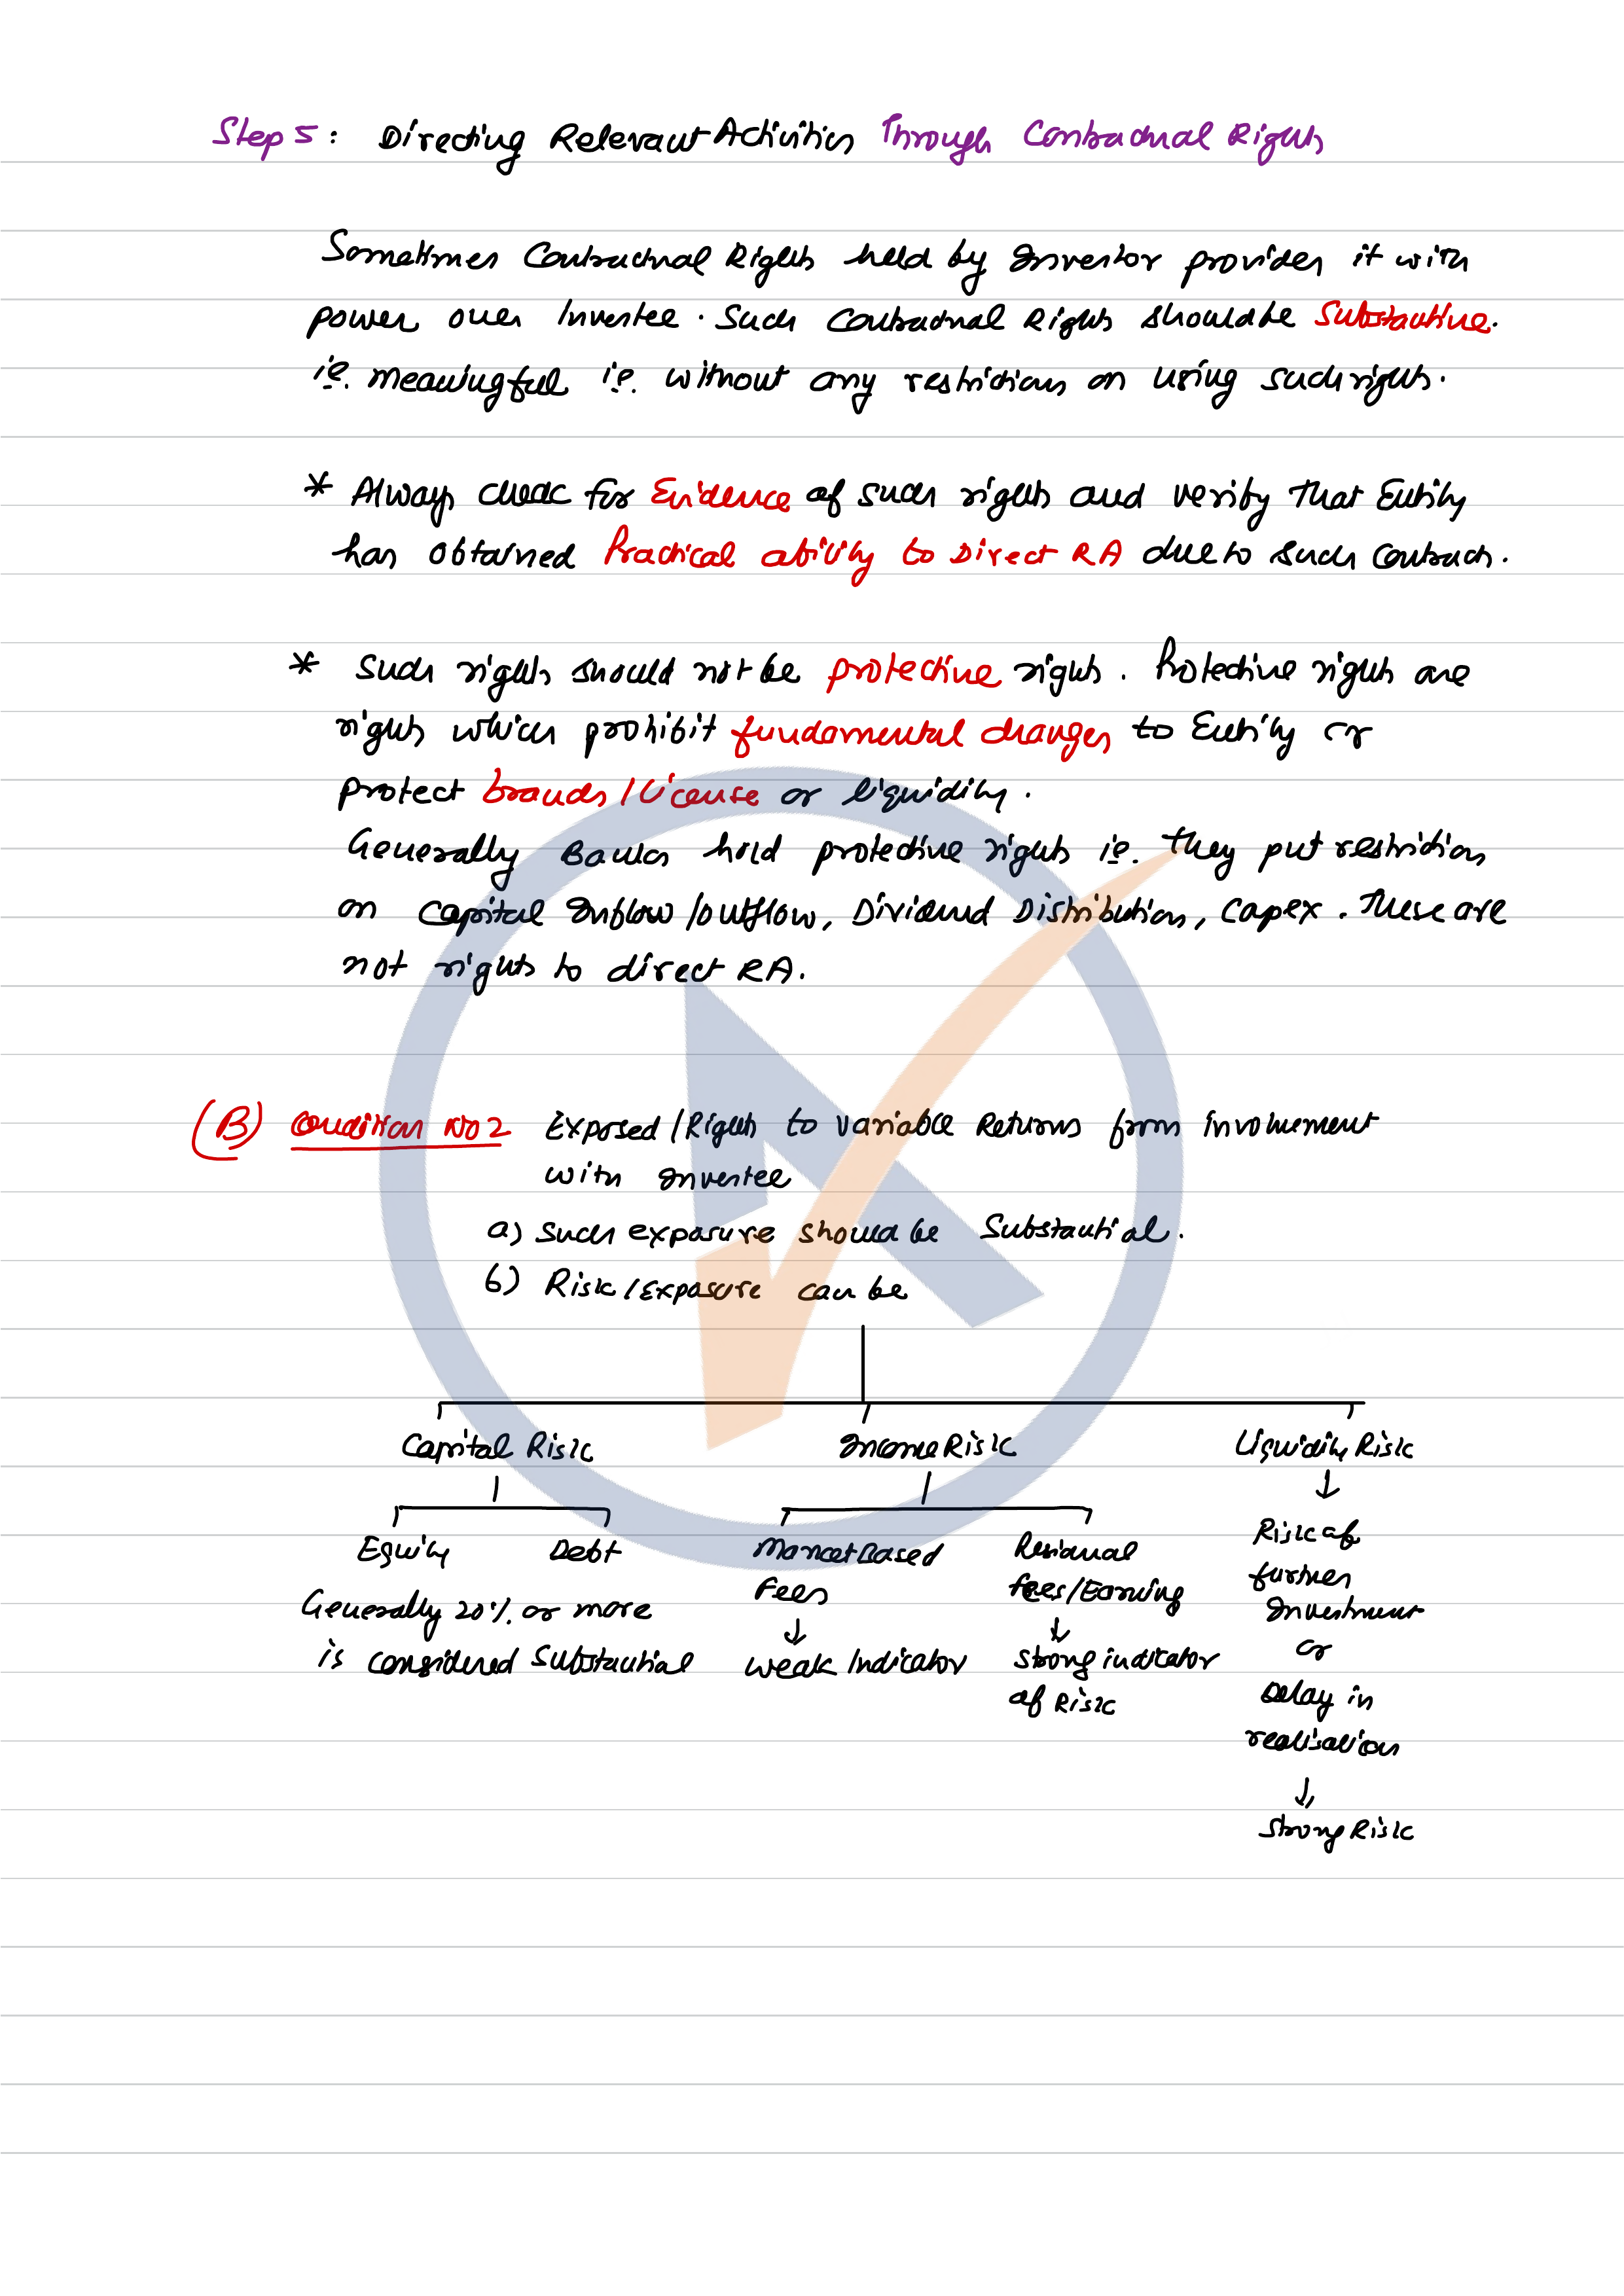 Step 5: Directing Relevant Activities Through Contractual Rights
Sometimes Contractual Rights held by Investor provides it with
power over Investee. Such Contractual Rights should be Substantive.
i.e. meaningful i.e. without any restrictions on using such rights.
* Always check for Evidence of such rights and verify that Entity
has obtained Practical ability to Direct RA due to such contracts.
* Such rights should not be protective rights. Protective rights are
rights which prohibit fundamental changes to Entity or
protect brands/License or liquidity.
Generally Banks hold protective rights i.e. They put restrictions
on Capital Inflow/outflow, Dividend Distribution, Capex. These are
not rights to direct RA.
(B) Condition No 2 Exposed/Rights to variable Returns from involvement
with Investee
a) Such exposure should be Substantial.
b) Risk/Exposure can be
Capital Risk Income Risk Liquidity Risk
Equity Debt Market Based Residual Risk of
Fees fees/Earning further
Generally 20% or more Investment
is considered Substantial weak Indicator strong indicator or
of Risk Delay in
realisation
Strong Risk